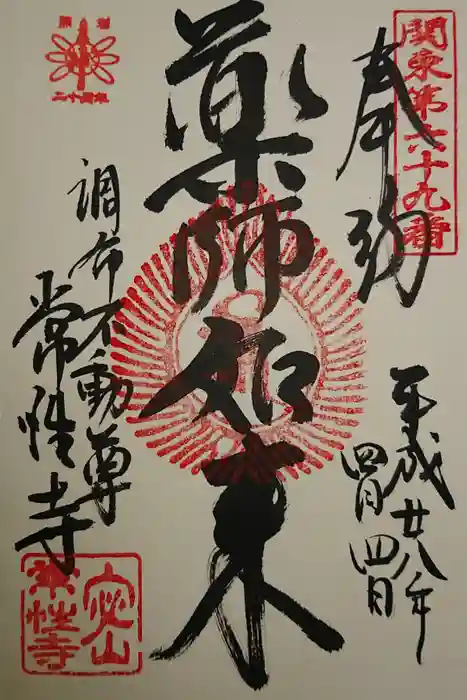 関東第六十九番
奉拝
平成廿八年
四月四日
薬師如来
二十周年
調布不動尊
常性寺
安山
常性寺